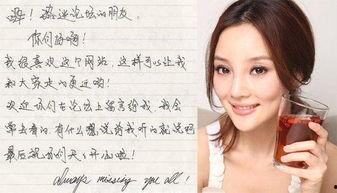 嗨！滚迷论坛的朋友。
你们好啊！
我很喜欢这个网站，这样可以让我
和大家走的更近哟！
欢迎你们在论坛上留言给我，我会
常去看的，有什么想说给我听的就说吗
最后祝你们天天开心啦！
always missing you all!